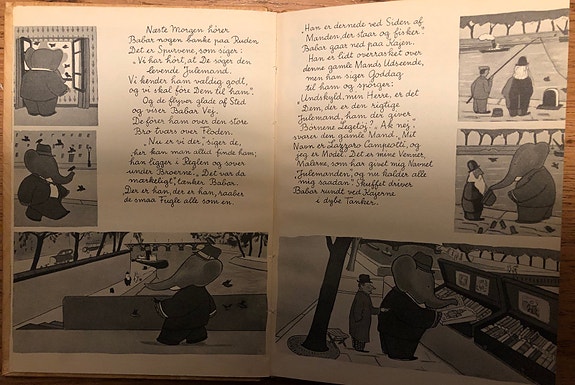 Næste Morgen hører
Babar nogen banke paa Ruden
Det er Spurvene, som siger:
„Vi har hørt, at De søger den
levende Julemand.
Vi kender ham valdig godt,
og vi skal føre Dem til ham".
Og de flyver glade af Sted
og viser Babar Vej.
De fører ham over den store
Bro tvars over Floden.
„Nu er vi der", siger de,
„her kan man altid finde ham;
han ligger i Reglen og sover
under Broerne". „Det var da
mærkeligt", tænker Babar.
Der er han, der er han, raaber
de smaa Fugle alle som en.
„Han er dernede ved Siden af
Manden, der staar og fisker."
Babar gaar ned paa Kajen.
Han er lidt overrasket over
denne gamle Mands Udseende,
men han siger Goddag
til ham og spørger:
„Undskyld, min Herre, er det
Dem, der er den rigtige
Julemand, ham der giver
Børnene Legetøj?" „Ak nej,"
svarer den gamle Mand, „Mit
Navn er Lazzaro Campeotti, og
jeg er Model. Det er mine Venner,
Malerne, som har givet mig Navnet
„Julemanden", og nu kalder alle
mig saadan". Skuffet driver
Babar rundt ved Kajerne
i dybe Tanker.